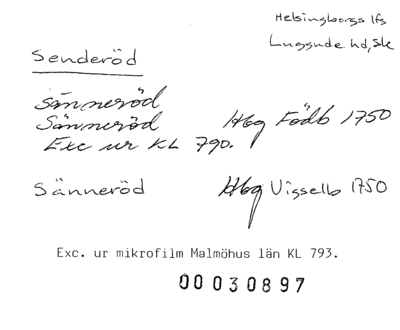 Helsingborgs lfs
Luggude hd, Sk
Senderöd
Sänneröd
Sänneröd Hbg Födb 1750
Exc ur KL 790.
Sänneröd Hbg Vigselb 1750
Exc. ur mikrofilm Malmöhus län KL 793.
00030897